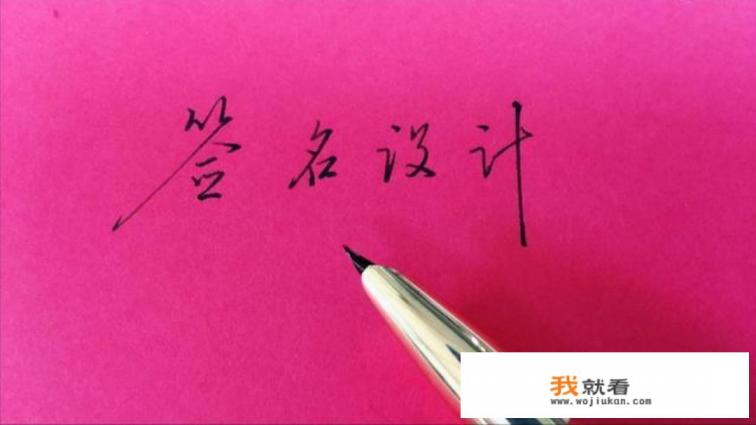 签名设计
我就看
www.wojiukan.com